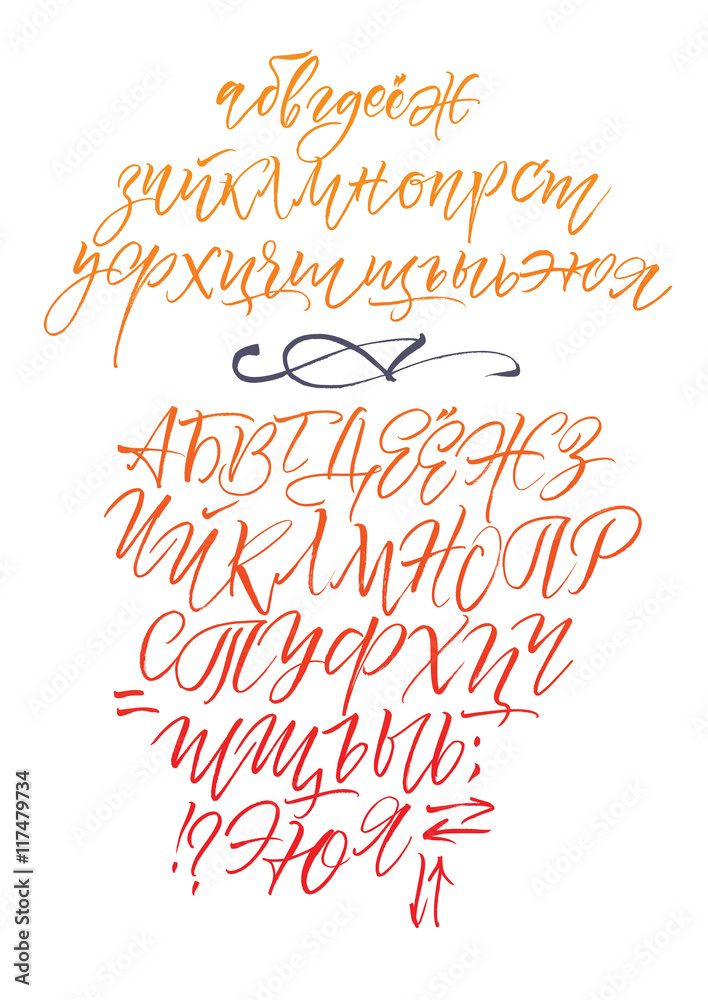 абвгдеёж
зийклмнопрст
уфрхцчтщъыьэюя
АБВГДЕЁЖЗ
ИЙКЛМНОПР
СТУФХЦЧ
=
ШЩЪЫЬ;
!?ЭЮЯ
Adobe Stock | #117479734